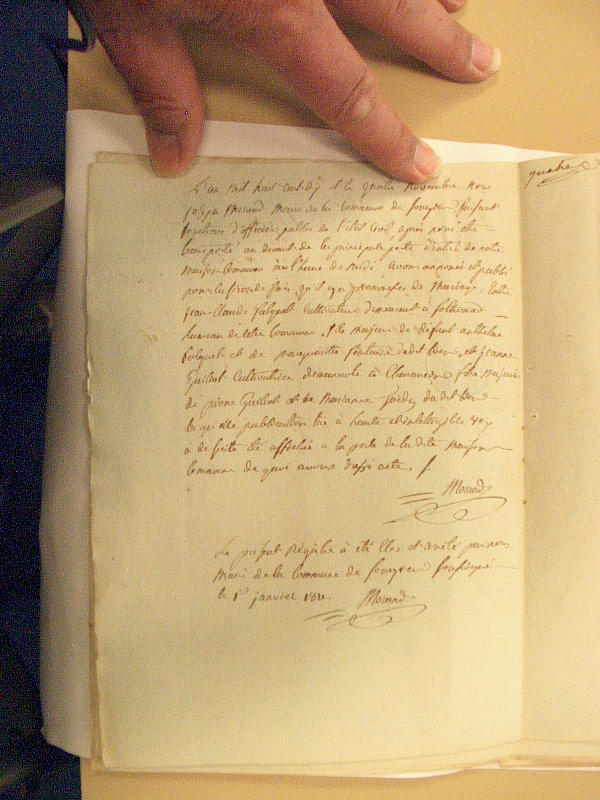 L'an mil huit cent dix et le quatre novembre nous
joseph Morand Maire de la Commune de faisant
fonctions d'officier public de l'état civil après nous être
transporté au devant de la principale porte d'entrée de notre
maison Commune à l'heure de midi avons annoncé et publié
pour la fois qu'il y a promesses de mariage, Entre
jean-Claude cultivateur demeurant à
hameau de cette Commune, fils majeur de défunt anthelme
et de marguerite fontaine dudit lieu, et jeanne
Guillot Cultivatrice demeurante à fille majeure
de pierre Guillot et de Marianne dudit lieu
la quelle publication lue à haute et intelligible voix
a de suite été affichée a la porte de la dite maison
Commune de quoi avons dressé acte.
Morand
Le présent Régistre à été Clos et arrêté par nous
Maire de la Commune de soussigné
le 1er janvier
Morand
quatre